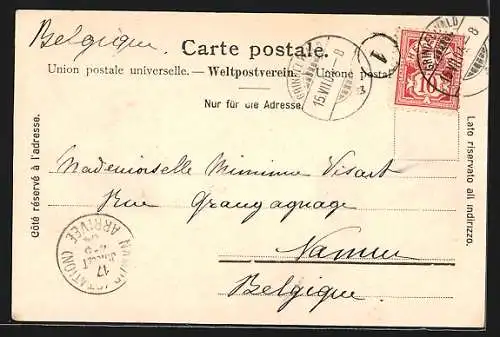 Belgique.
Carte postale.
Union postale universelle. — Weltpostverein. — Unione postale
Nur für die Adresse.
Côté réservé à l'adresse.
Lato riservato all indirizzo.
GRINDELWALD
15.VII.0 -8
GRINDELWALD
15.VII. -8
10
1
Mademoiselle Mimime Visart
Rue Grangagnage
Namur
Belgique.
NAMUR (STATION)
ARRIVÉE
17
JUILLET